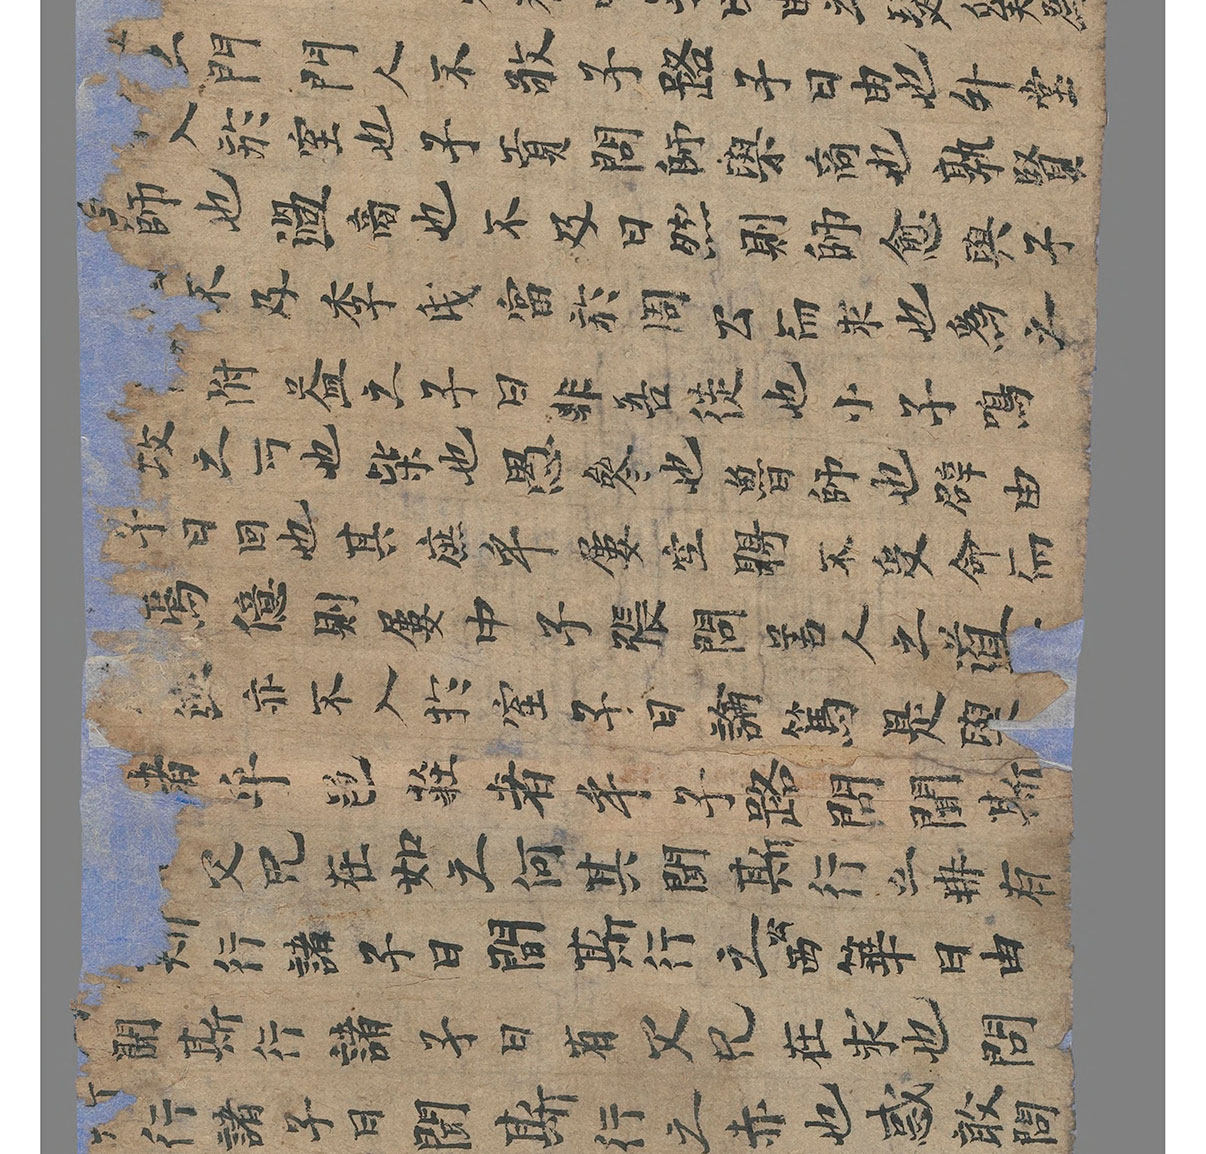 曰由之瑟奚為
門門人不敬子路子曰由也升堂
入於室也子貢問師與商也孰賢
師也過商也不及曰然則師愈與子
不及季氏富於周公而求也為之
附益之子曰非吾徒也小子鳴
攻之可也柴也愚參也魯師也辟由
子曰回也其庶乎屢空賜不受命而
焉億則屢中子張問善人之道
亦不入於室子曰論篤是與
者乎色莊者乎子路問聞斯
父兄在如之何其聞斯行之冉有
行諸子曰聞斯行之公西華曰由
聞斯行諸子曰有父兄在求也問
行諸子曰聞斯行之赤也惑敢問